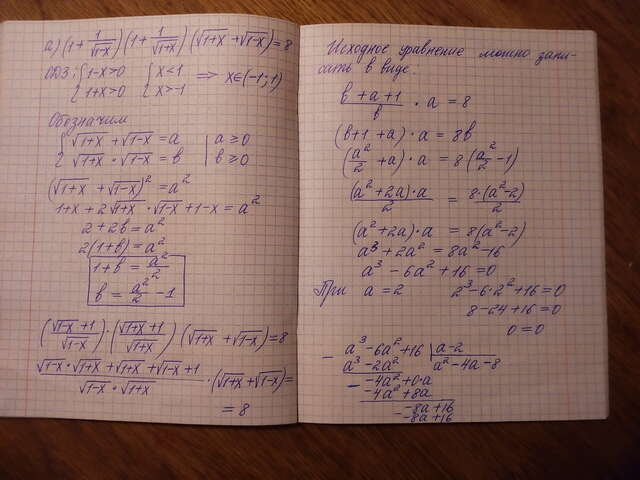 а) (1 + 1/√(1-x)) (1 + 1/√(1+x)) (√(1+x) + √(1-x)) = 8
ОДЗ: { 1-x>0 { x<1 ⇒ x∈(-1; 1)
{ 1+x>0 { x>-1
Обозначим
{ √(1+x) + √(1-x) = a | a ≥ 0
{ √(1+x) · √(1-x) = b | b ≥ 0
(√(1+x) + √(1-x))² = a²
1+x + 2√(1+x) · √(1-x) + 1-x = a²
2 + 2b = a²
2(1+b) = a²
1+b = a²/2
b = a²/2 - 1
((√(1-x) + 1)/√(1-x)) · ((√(1+x) + 1)/√(1+x)) (√(1+x) + √(1-x)) = 8
(√(1-x) · √(1+x) + √(1+x) + √(1-x) + 1)/(√(1-x) · √(1+x)) · (√(1+x) + √(1-x)) =
= 8
Исходное уравнение можно запи-
сать в виде:
(b + a + 1)/b · a = 8
(b+1 + a) · a = 8b
(a²/2 + a) · a = 8(a²/2 - 1)
(a² + 2a) · a/2 = 8·(a² - 2)/2
(a² + 2a) · a = 8(a² - 2)
a³ + 2a² = 8a² - 16
a³ - 6a² + 16 = 0
При a = 2 2³ - 6·2² + 16 = 0
8 - 24 + 16 = 0
0 = 0
- a³ - 6a² + 16 | a - 2
a³ - 2a² a² - 4a - 8
- -4a² + 0·a
-4a² + 8a
- -8a + 16
-8a + 16